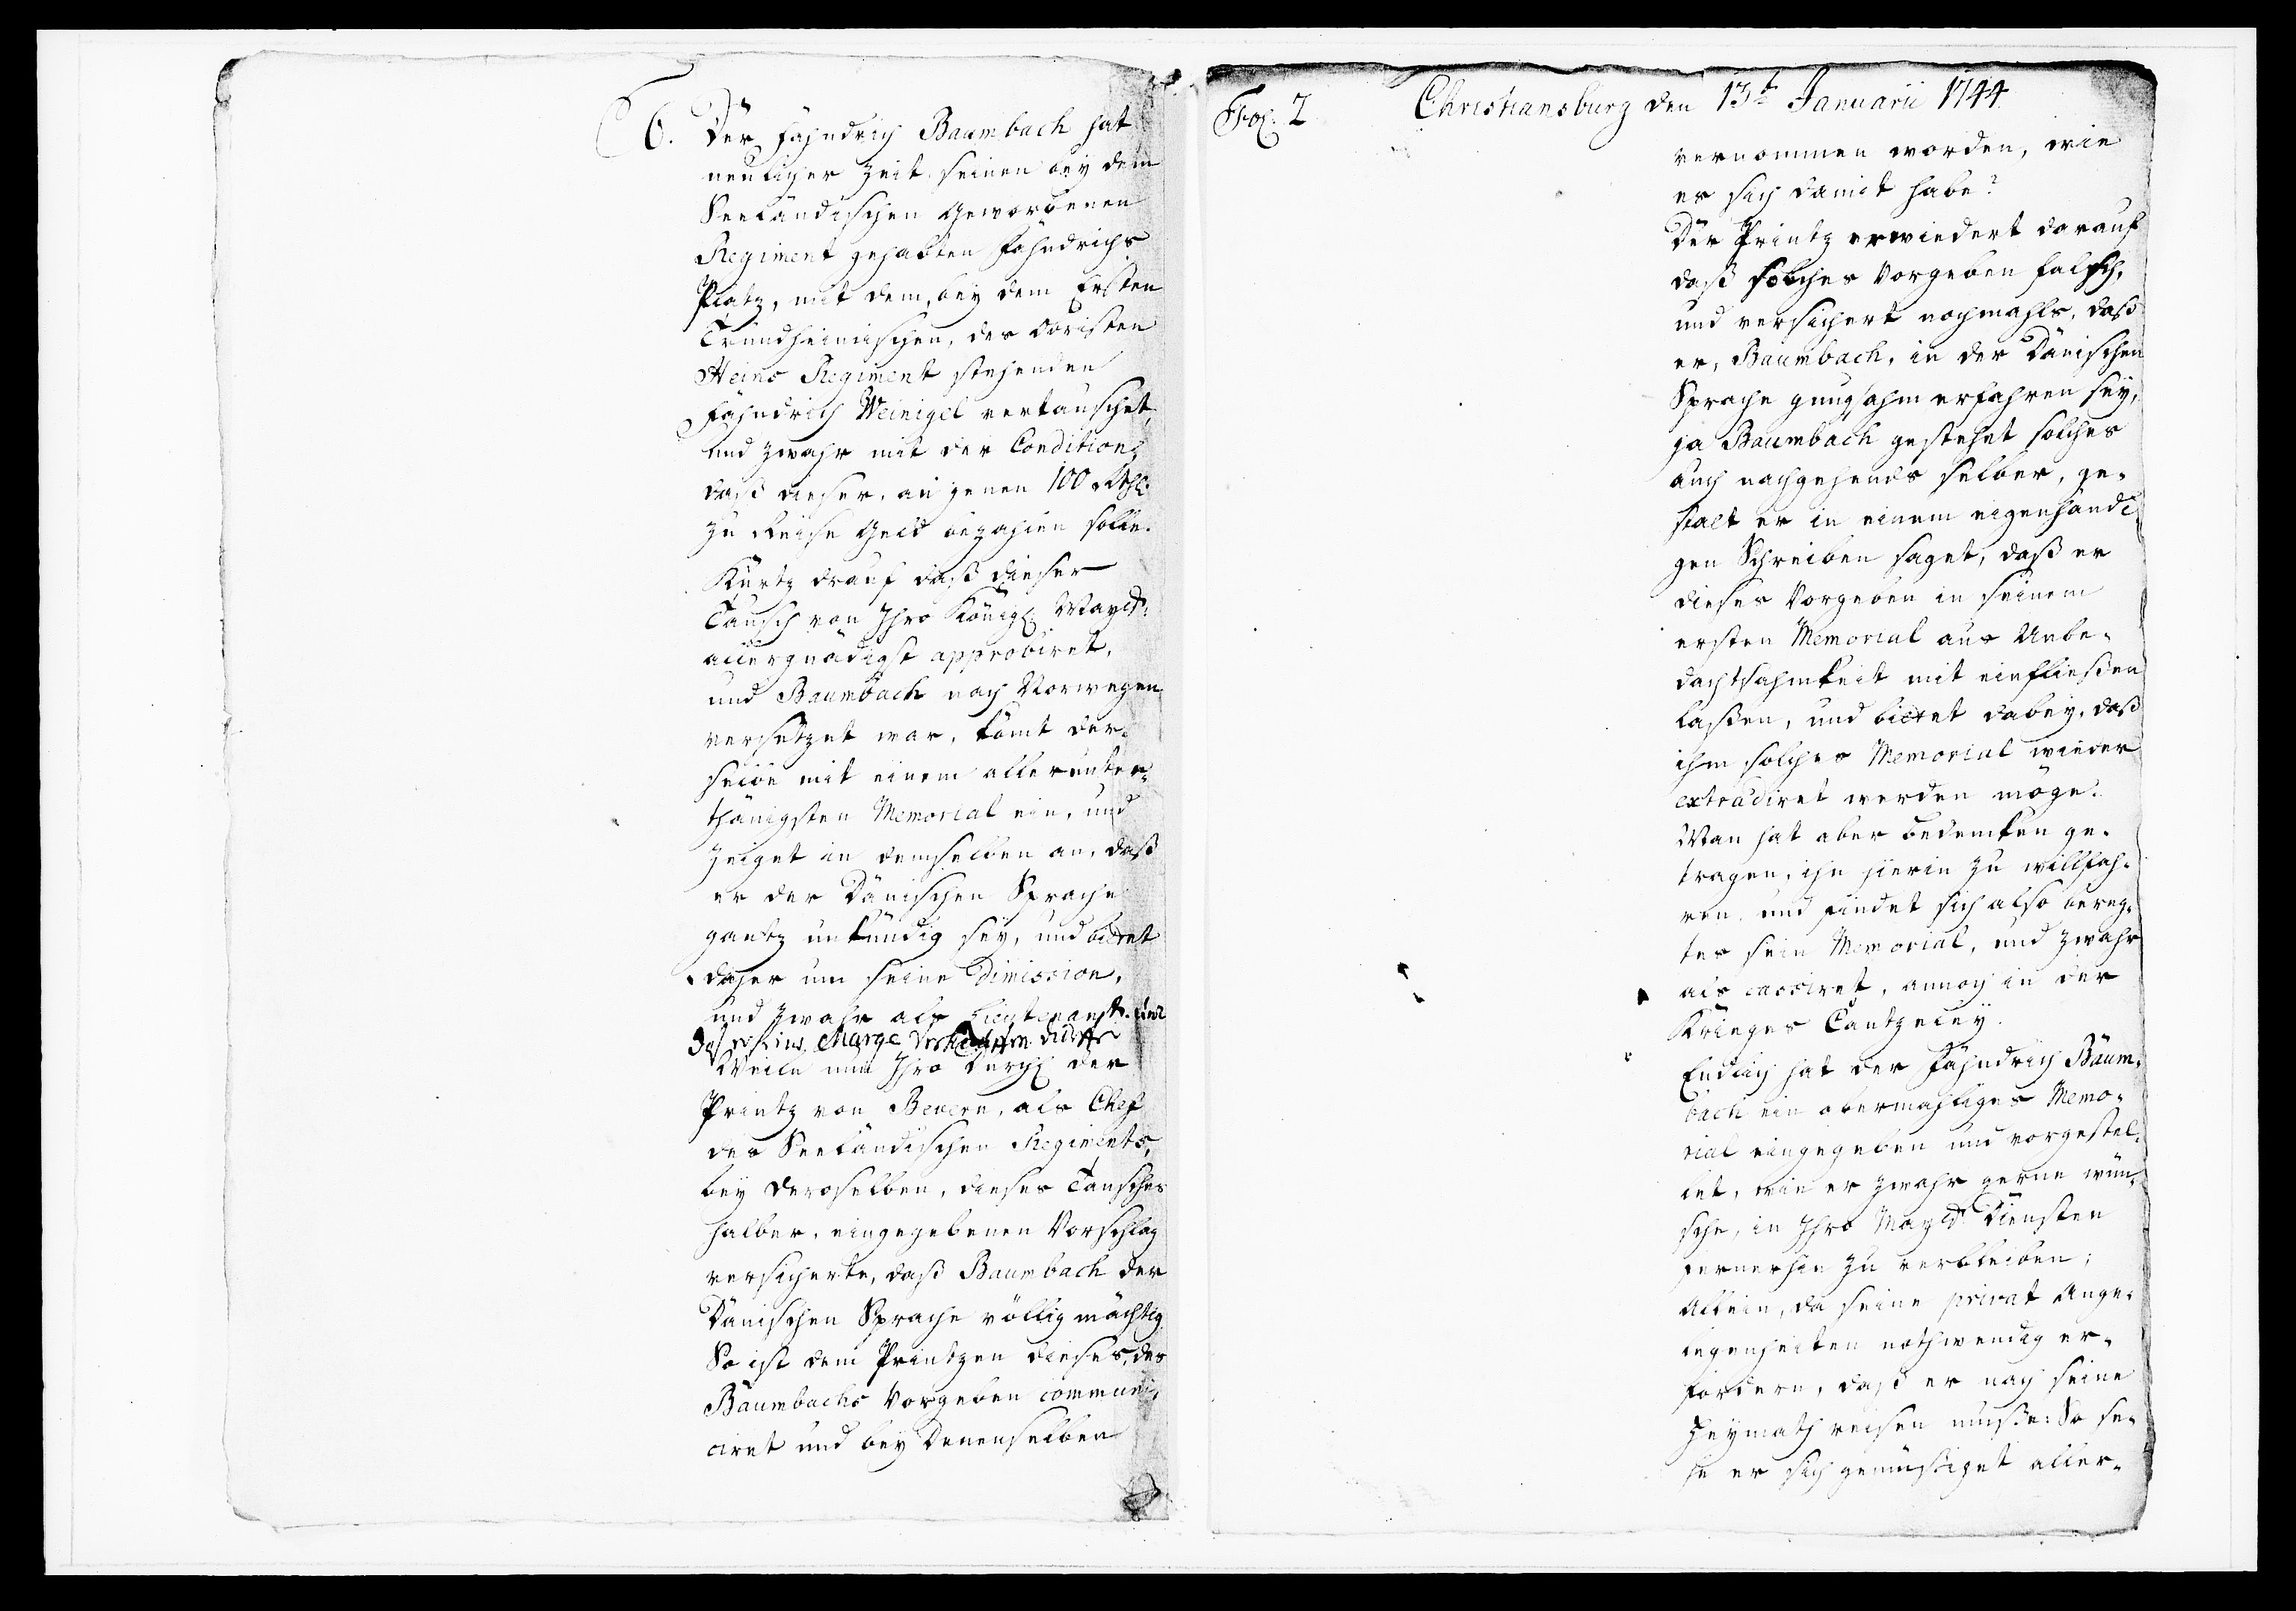 6. Der Fähndrich Baumbach hat
neulicher Zeit seinen bey dem
Seeländischen Geworbenen
Regiment gehabten Fähndrichs
Platz, mit dem, bey dem Ersten
Trundheimischen, des Obristen
Heins Regiment stehenden
Fähndrich Weinigel vertauschet,
und zwahr mit der Condition,
daß dieser, an jenen 100 Rthlr
zu Reise Geld bezahlen solle.
Kurtz drauf daß dieser
Tausch von Ihro Königl. Mayst:
allergnädigst approbiret,
und Baumbach nach Norwegen
versetzet war, kömt der-
selbe mit einem allerunter-
thänigsten Memorial ein, und
zeiget in demselben an, daß
er der Dänischen Sprache
gantz unkündig sey, und bittet
daher um seine Dimission,
und zwahr als Lieutenant.
Charge
Weiln nun Ihro Durchl der
Printz von Bevern, als Chef
des Seeländischen Regiments,
bey deroselben, dieses Tausches
halber, eingegebenen Vorschlag
versicherte, daß Baumbach der
Dänischen Sprache völlig mächtig
So ist dem Printzen dieses, des
Baumbachs Vorgeben communi-
ciret und bey Denenselben
Fol: 2 Christiansburg den 13t Januarii 1744
vernommen worden, wie
es sich damit habe?
Der Printz erwiedert darauf
daß solches Vorgeben falsch,
und versichert nochmahls, daß
er, Baumbach, in der Dänischen
Sprache gnugsahm erfahren sey,
ja Baumbach gestehet solches
auch nachgehends selber, ge-
stalt er in einem eigenhändi
gen Schreiben saget, daß er
dieses Vorgeben in seinem
ersten Memorial aus Unbe-
dachtsahmkeit mit einfließen
laßen, und bittet dabey, daß
ihm solches Memorial wieder
extradiret werden möge.
Man hat aber bedencken ge-
tragen, ihn hierin zu willfah-
ren, und findet sich also bereg-
tes sein Memorial, und zwahr
als cassiret, annoch in der
Krieges Cantzeley.
Endlich hat der Fähndrich Baum-
bach ein abermahliges Memo-
rial eingegeben und vorgestel-
let, wie er zwahr gerne wün-
sche, in Ihro Mayst Diensten
fernerhin zu verbleiben;
Allein, da seine privat Ange-
legenheiten nothwendig er-
fordern, daß er nach seine
Heymath reisen müße: So se-
he er sich gemüßiget aller-